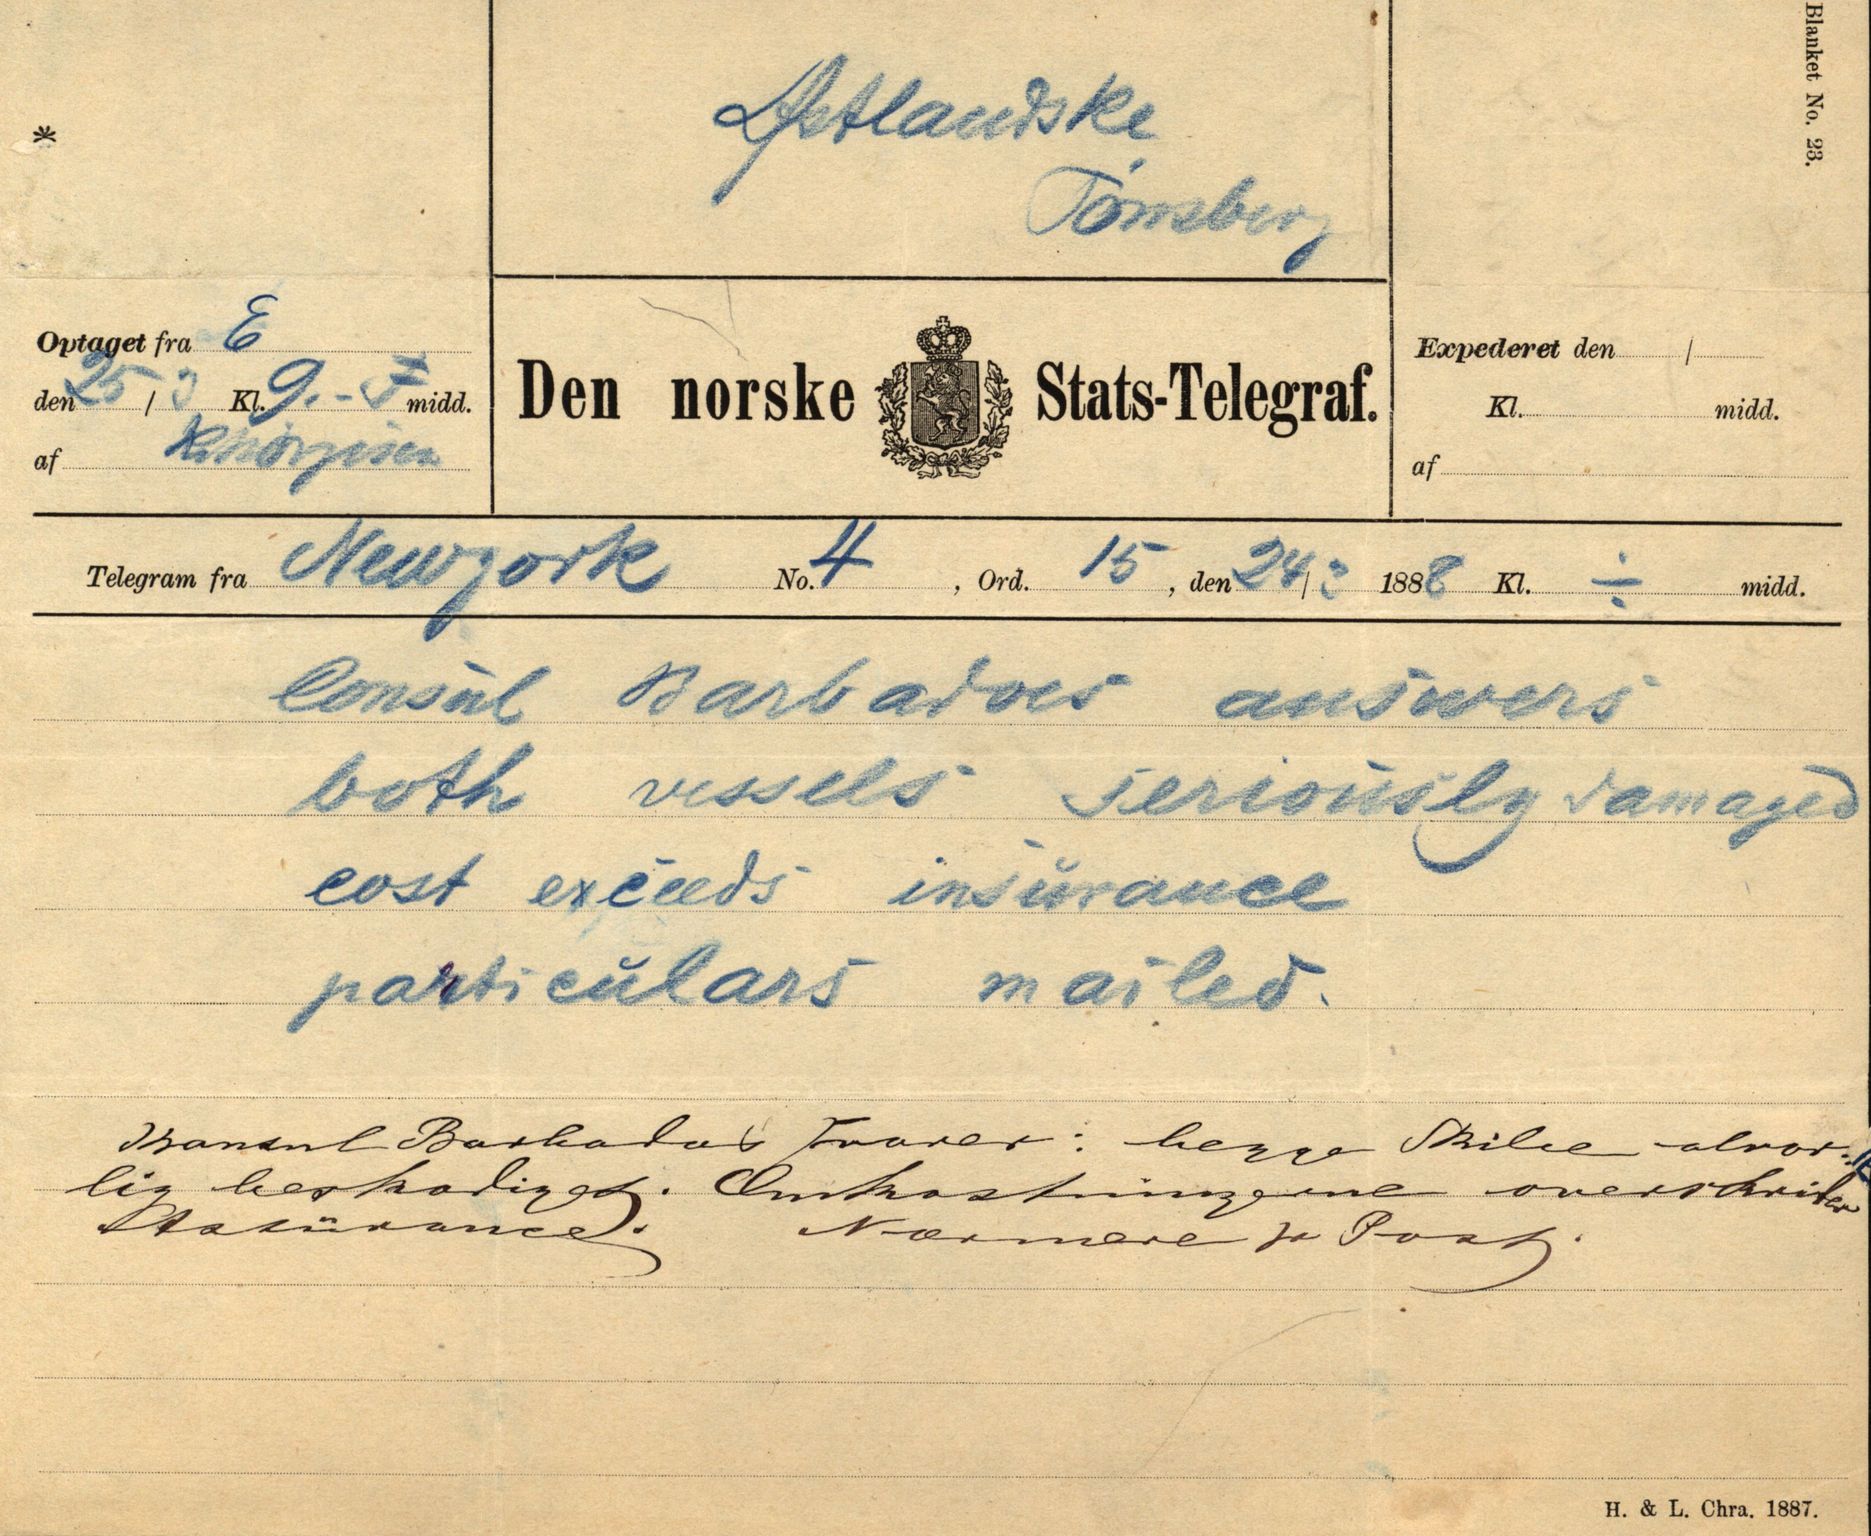 Blanket No. 23.
*
Østlandske
Tønsberg
Optaget fra E
den 25/3 Kl. 9.- F midd.
af
Den norske Stats-Telegraf.
Expederet den /
Kl. midd.
af
Telegram fra Newyork No. 4, Ord. 15, den 24/3 1888 Kl. ÷ midd.
Consul Barbadoes answers
both vessels seriously damaged
cost exceeds insurance
particulars mailed.
Konsul Barbados svarer: begge Skibe alvor-
lig beskadiget. Omkostningerne overskrider
Assürance. Nærmere pr Post.
H. & L. Chra. 1887.